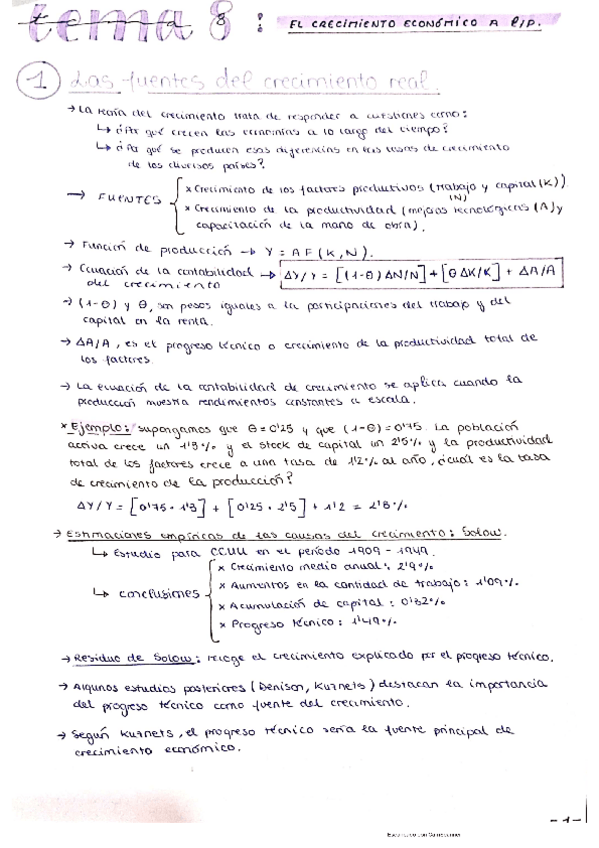 tema 8: EL CRECIMIENTO ECONÓMICO A l/p.
1 Las fuentes del crecimiento real.
→ La teoría del crecimiento trata de responder a cuestiones como:
↳ ¿Por qué crecen las economías a lo largo del tiempo?
↳ ¿Por qué se producen esas diferencias en las tasas de crecimiento
de los diversos países?
→ FUENTES
× Crecimiento de los factores productivos (trabajo y capital (K))
(N)
× Crecimiento de la productividad (mejoras tecnológicas (A) y
capacitación de la mano de obra).
→ Función de producción → Y = AF(K,N).
→ Ecuación de la contabilidad → ΔY/Y = [(1-θ)ΔN/N] + [θΔK/K] + ΔA/A
del crecimiento
→ (1-θ) y θ, son pesos iguales a las participaciones del trabajo y del
capital en la renta.
→ ΔA/A, es el progreso técnico o crecimiento de la productividad total de
los factores.
→ La ecuación de la contabilidad de crecimiento se aplica cuando la
producción muestra rendimientos constantes a escala.
× Ejemplo: supongamos que θ = 0'25 y que (1-θ) = 0'75. La población
activa crece un 1'3% y el stock de capital un 2'5% y la productividad
total de los factores crece a una tasa de 1'2% al año, ¿cuál es la tasa
de crecimiento de la producción?
ΔY/Y = [0'75 · 1'3] + [0'25 · 2'5] + 1'2 = 2'8%
→ Estimaciones empíricas de las causas del crecimiento: Solow.
↳ Estudio para CCUU en el período 1909 - 1949.
↳ conclusiones
× Crecimiento medio anual: 2'9%
× Aumentos en la cantidad de trabajo: 1'09%
× Acumulación de capital: 0'32%
× Progreso técnico: 1'49%
→ Residuo de Solow: recoge el crecimiento explicado por el progreso técnico.
→ Algunos estudios posteriores (Denison, Kuznets) destacan la importancia
del progreso técnico como fuente del crecimiento.
→ Según Kuznets, el progreso técnico sería la fuente principal de
crecimiento económico.
-1-
Escaneado con CamScanner